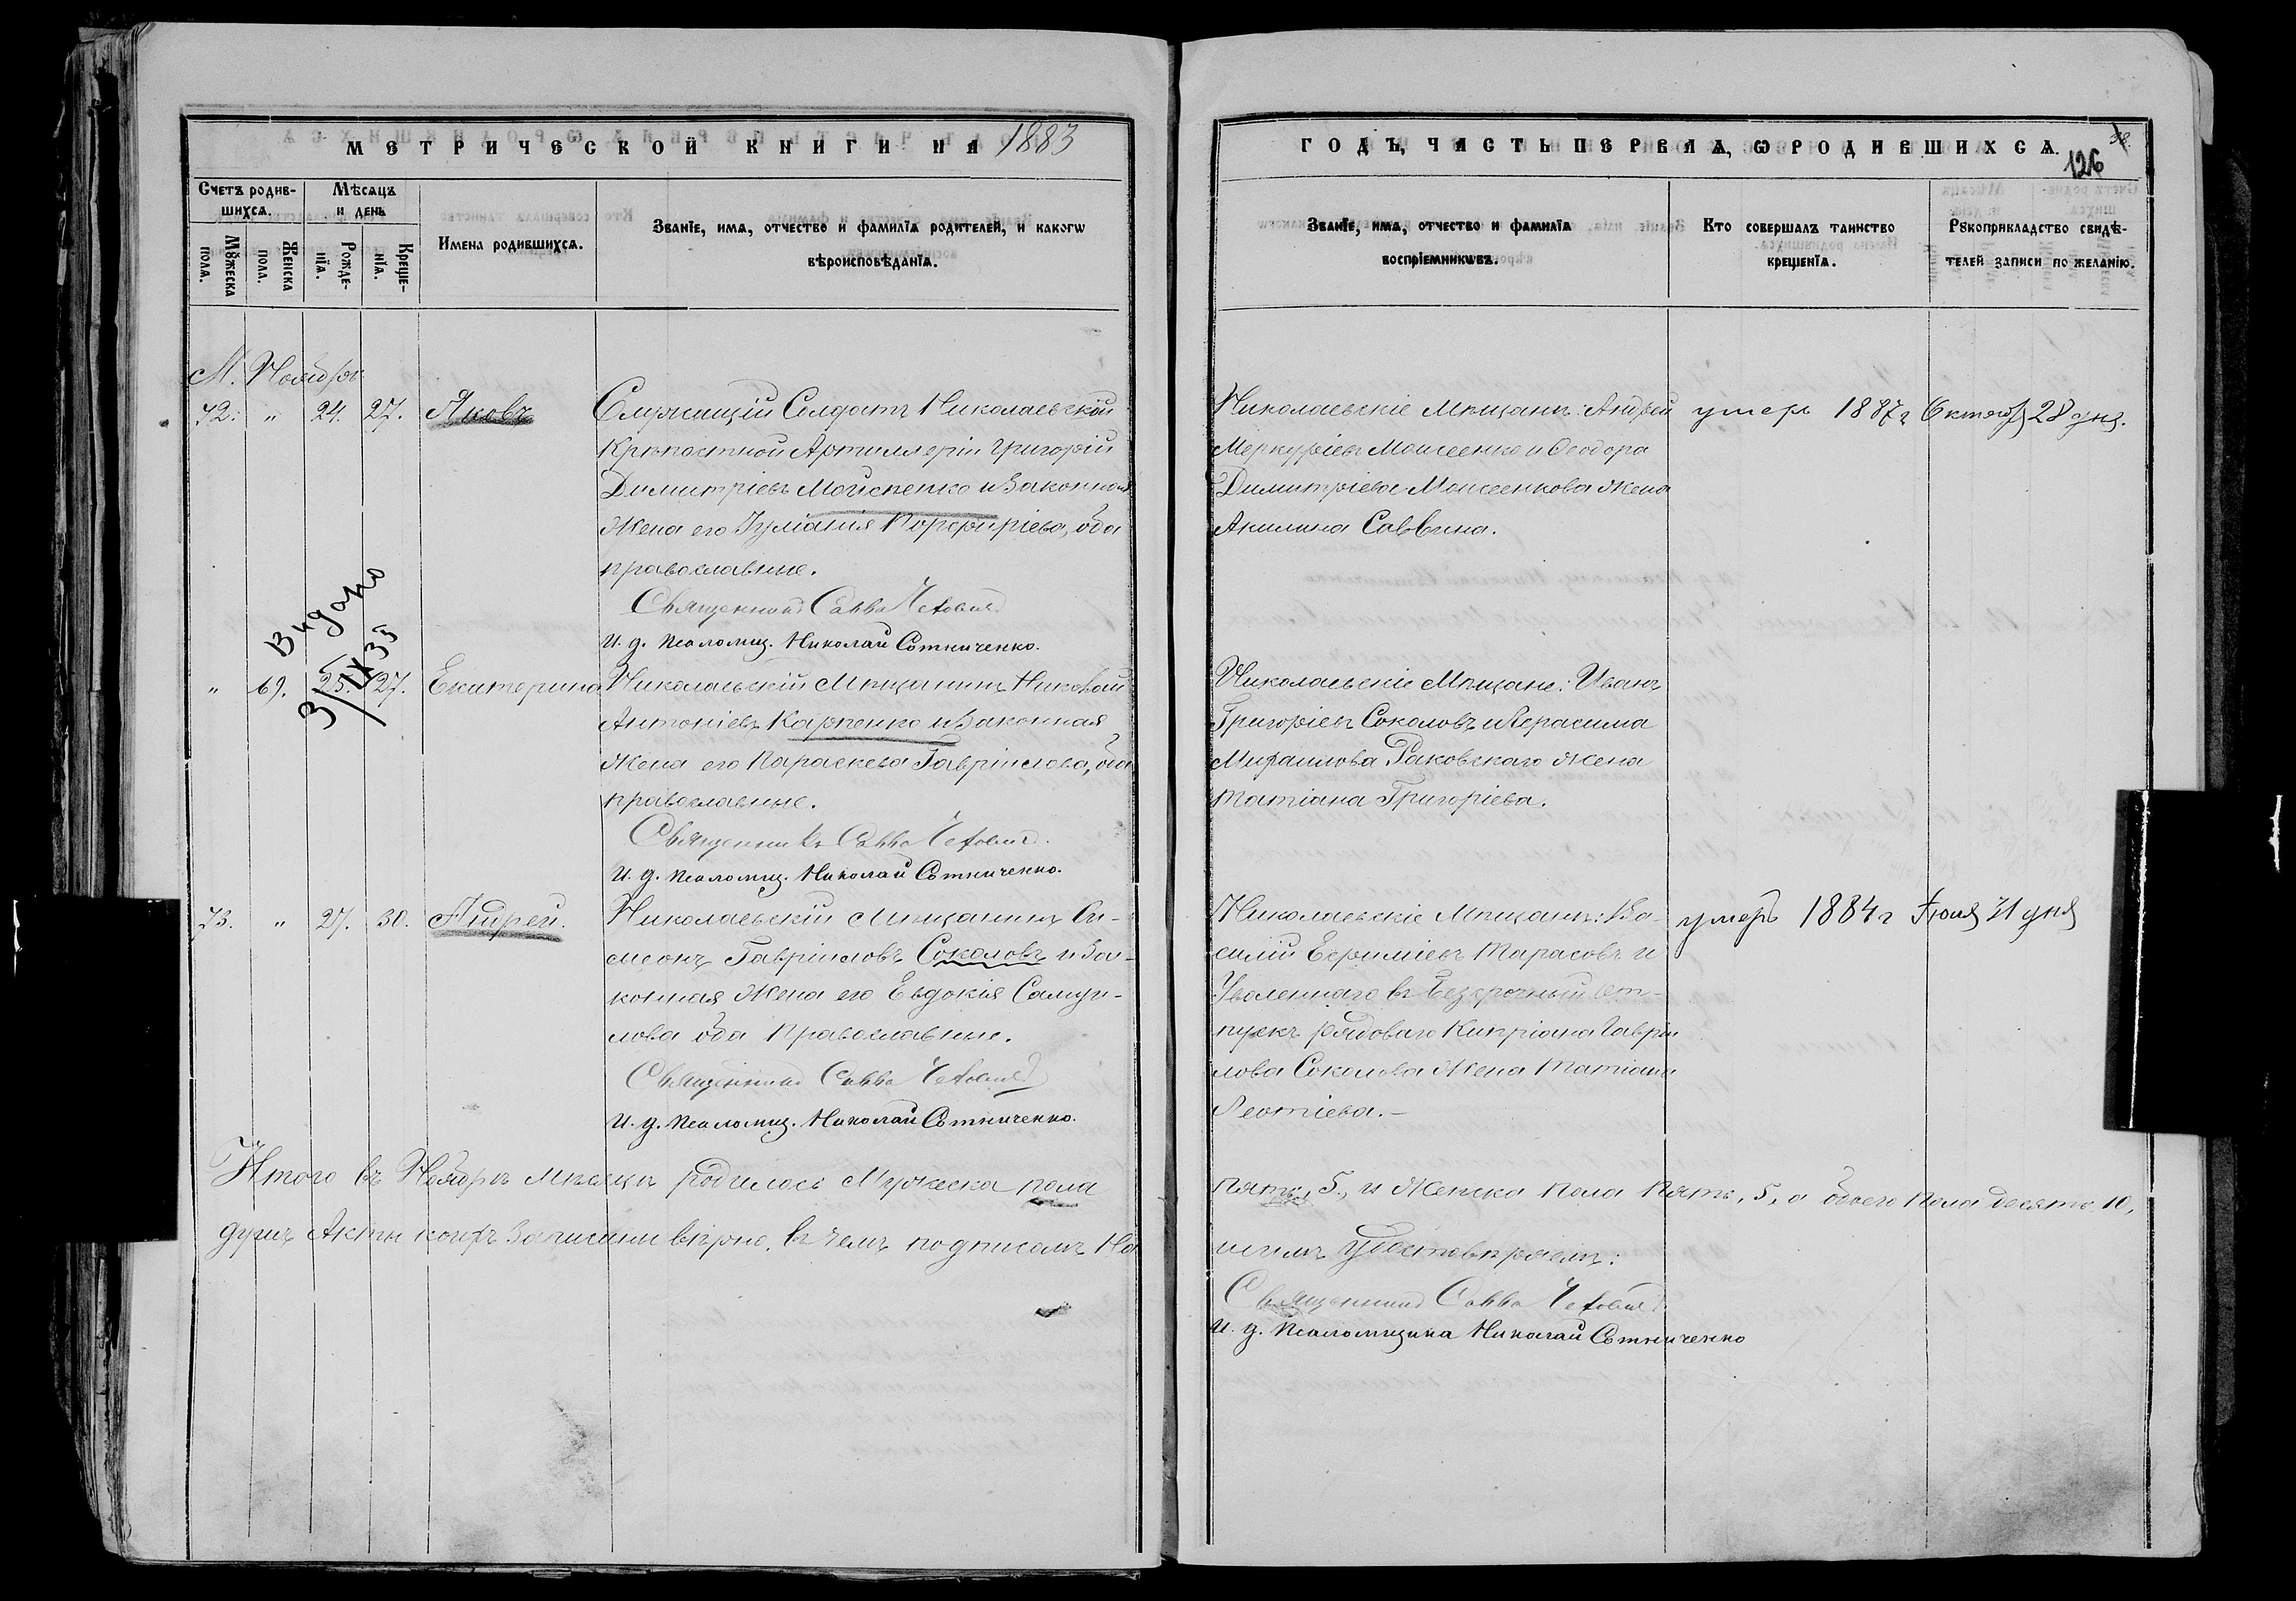 МЕТРИЧЕСКОЙ КНИГИ НА 1883
Счетъ родив-
шихсѧ.
Мѣсѧцъ
и день
Мꙋжеска
пола.
Женска
пола.
Рожде-
нїѧ.
Креще-
нїѧ.
Имена родившихсѧ.
Званїе, имѧ, отчество и фамилїѧ родителей, и какогѡ
вѣроисповѣданїѧ.
М. Ноябрь
72. " 24. 27. Яковъ
Служащій Солдатъ Николаевской
Крѣпостной Артиллеріи Григорій
Димитріевъ Мойсеенко и Законная
Жена его Іуліанія Порфиріева, оба
православные.
Священникъ Савва
И. д. Псаломщ. Николай Сотниченко.
Выдано
3/IX 35
" 69. 25. 27. Екатерина
Николаевскій Мѣщанинъ Николай
Антоніевъ Карпенко и Законная
Жена его Параскева Гавріилова, оба
православные.
Священникъ Савва
И. д. Псаломщ. Николай Сотниченко.
73. " 27. 30. Андрей.
Николаевскій Мѣщанинъ Си-
меонъ Гавріиловъ Соколовъ и За-
конная Жена его Евдокія Самуи-
лова оба Православные.
Священникъ Савва
И. д. Псаломщ. Николай Сотниченко.
Итого въ Ноябрѣ Мѣсяцѣ родилось Мужеска пола
душъ Акты коихъ Записаны вѣрно, въ чемъ подписомъ На
ГОДЪ, ЧАСТЬ ПЕРВАѦ, Ѡ РОДИВШИХСѦ.
38.
126
Званїе, имѧ, отчество и фамилїѧ
воспрїемникѡвъ.
Кто совершалъ таинство
крещенїѧ.
Рꙋкоприкладство свидѣ-
телей записи по желанїю.
Николаевскіе Мѣщане: Андрей
Меркуріевъ Моисеенко и Феодора
Димитріева Моисеенкова Жена
Акилина Саввина.
умеръ 1887 г Октября 28 дня.
Николаевскіе Мѣщане: Иванъ
Григоріевъ Соколовъ и Герасима
Михаилова Раковскаго Жена
Татіана Григоріева.
Николаевскіе Мѣщане: Ва-
силій Ефиміевъ Тарасовъ и
Уволеннаго въ Безсрочный От-
пускъ рядоваго Кипріана Гаврі
лова Соколова Жена Татіана
Леотіева.–
умеръ 1884 г Іюля 21 дня
пять, 5., и Женска Пола Пять, 5, а обоего Пола десять 10,
шимъ Удостовѣряемъ:
Священникъ Савва
И. д. Псаломщика Николай Сотниченко